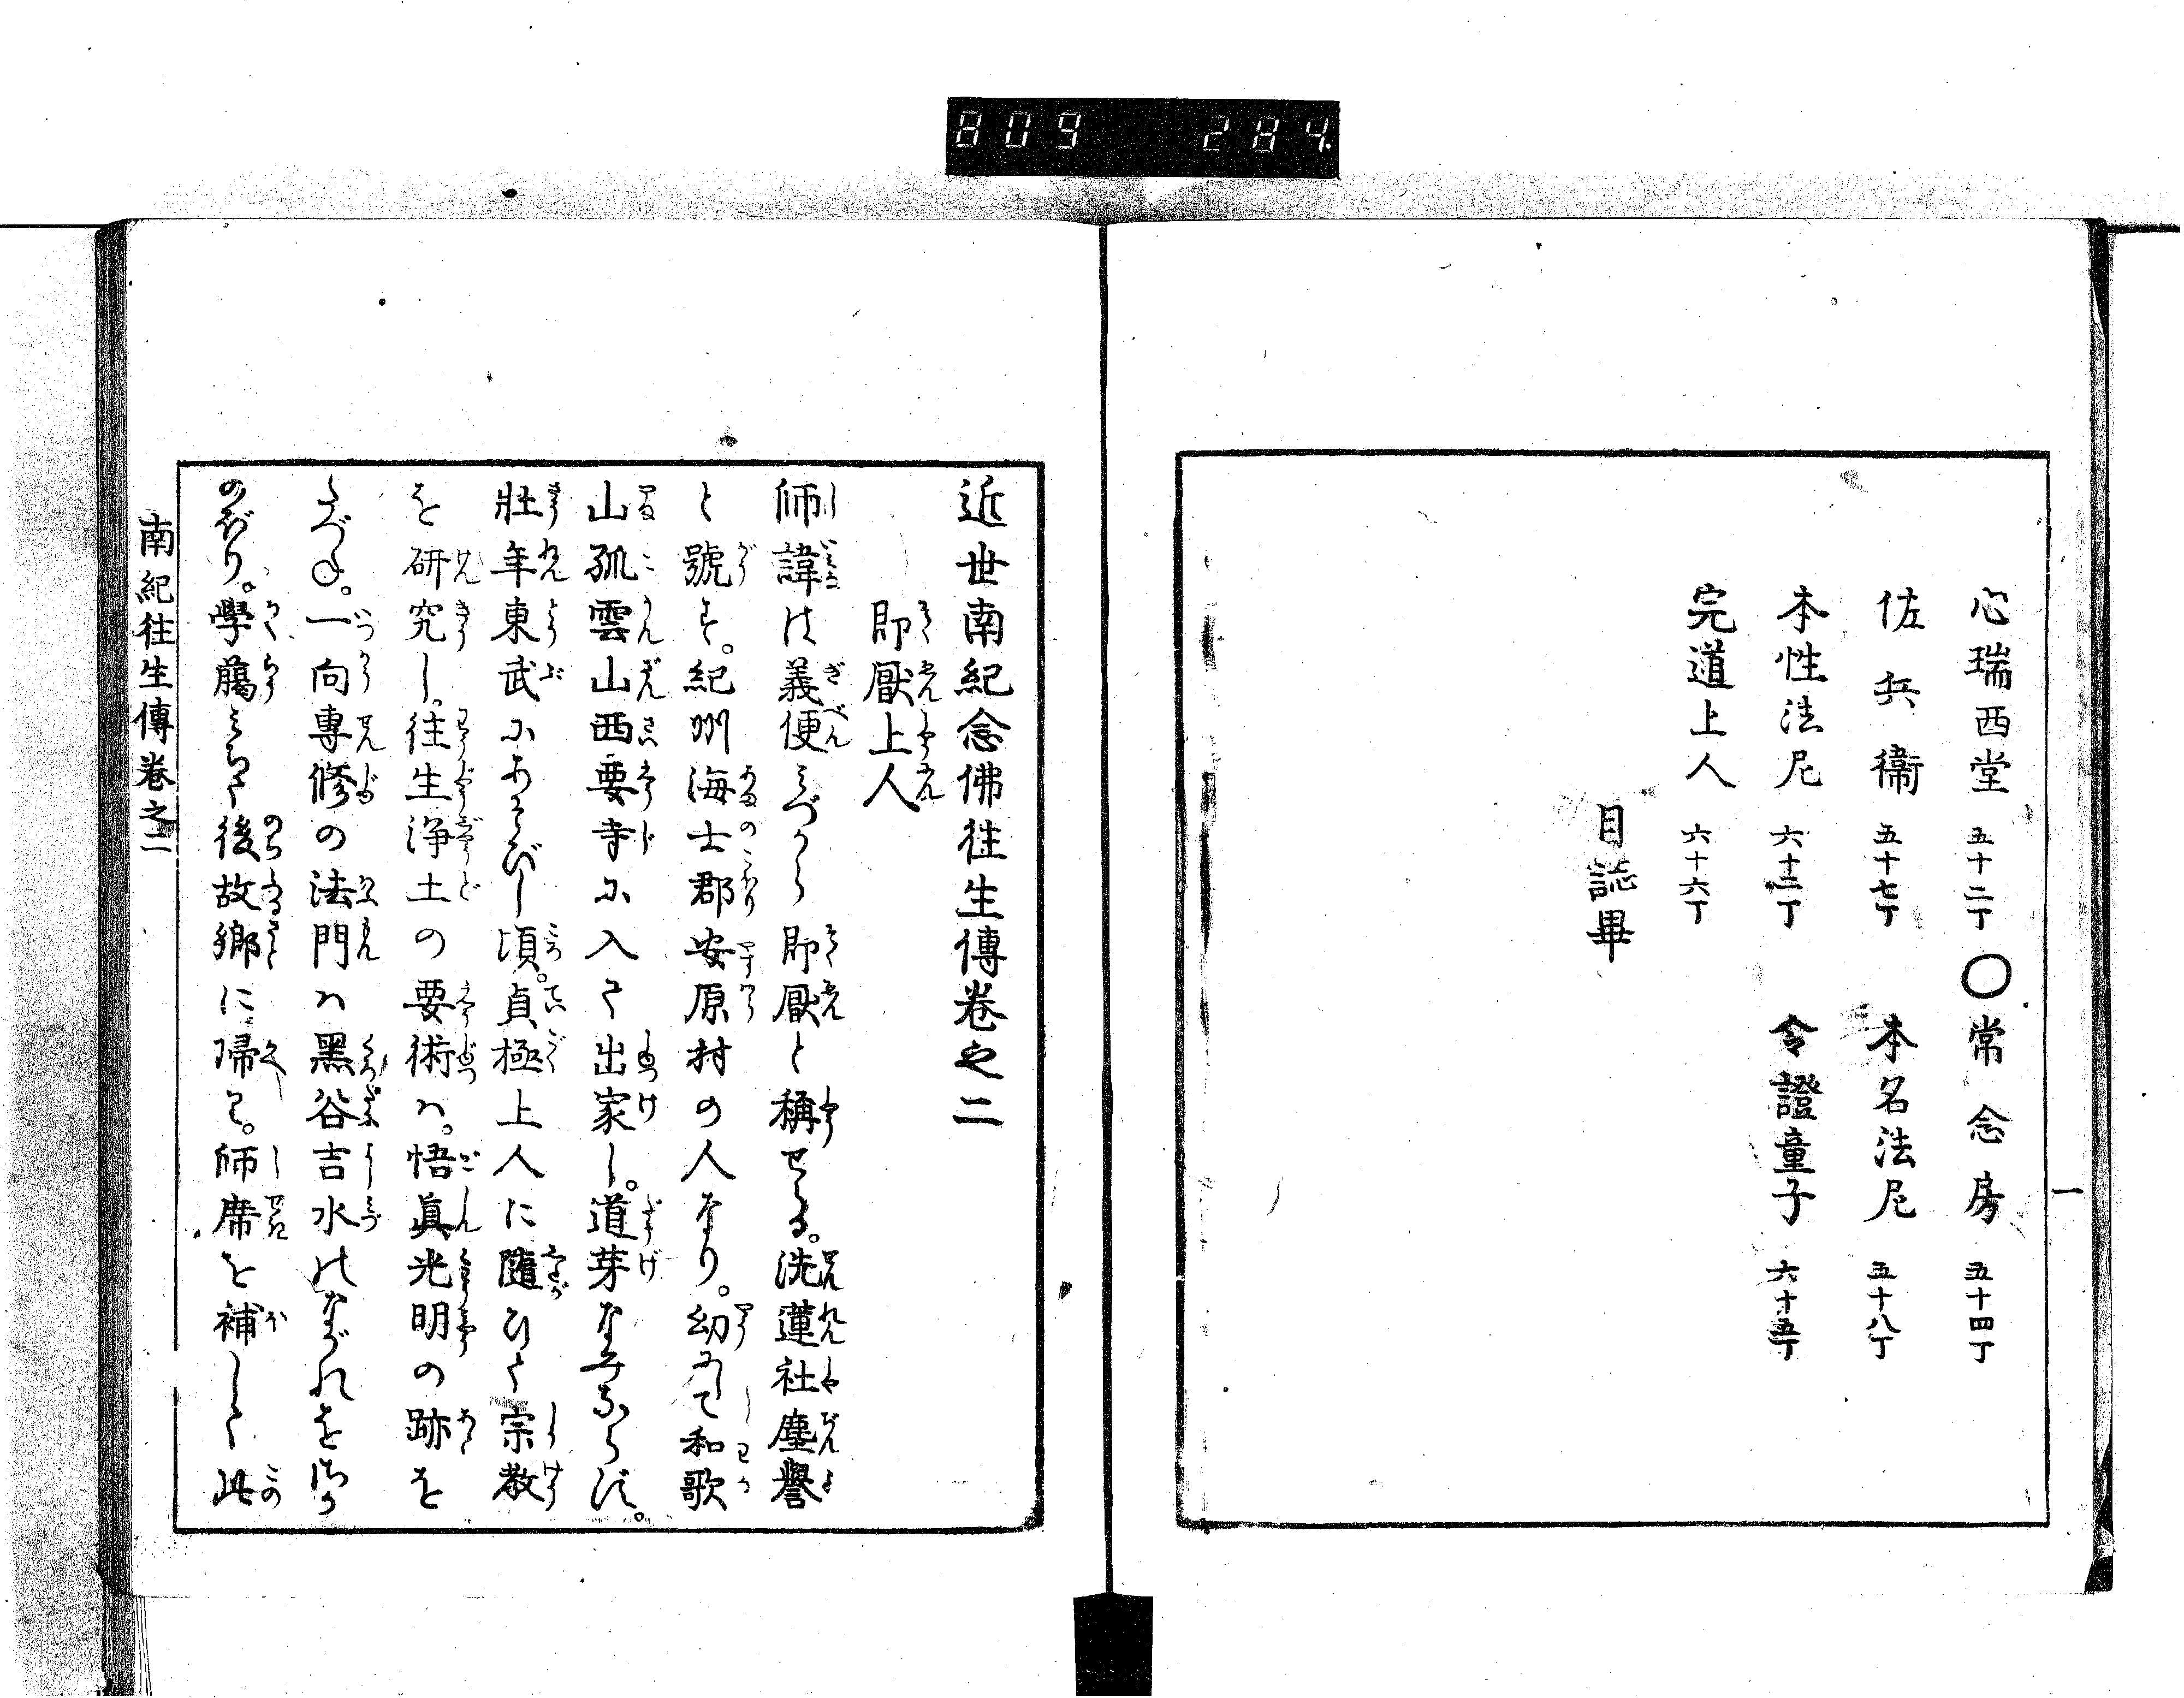 809 284
心瑞西堂 五十二丁 ○常念房 五十四丁
佐兵衞 五十七丁 本名法尼 五十八丁
本性法尼 六十二丁 令證童子 六十五丁
完道上人 六十六丁
目誌畢
一
近世南紀念佛往生傳卷之二
即厭上人
師諱は義便みづから即厭と稱せる。洗蓮社塵譽
と號す。紀州海士郡安原村の人なり。幼にて和歌
山孤雲山西要寺に入て出家し。道芽なみならず。
壯年東武にあそびし頃。貞極上人に隨ひて宗教
を研究し。往生淨土の要術ハ。悟眞光明の跡を
たづね。一向專修の法門ハ黑谷吉水のながれを
のぼり。學﨟みちて後故鄉に帰る。師席を補して此
南紀往生傳卷之二